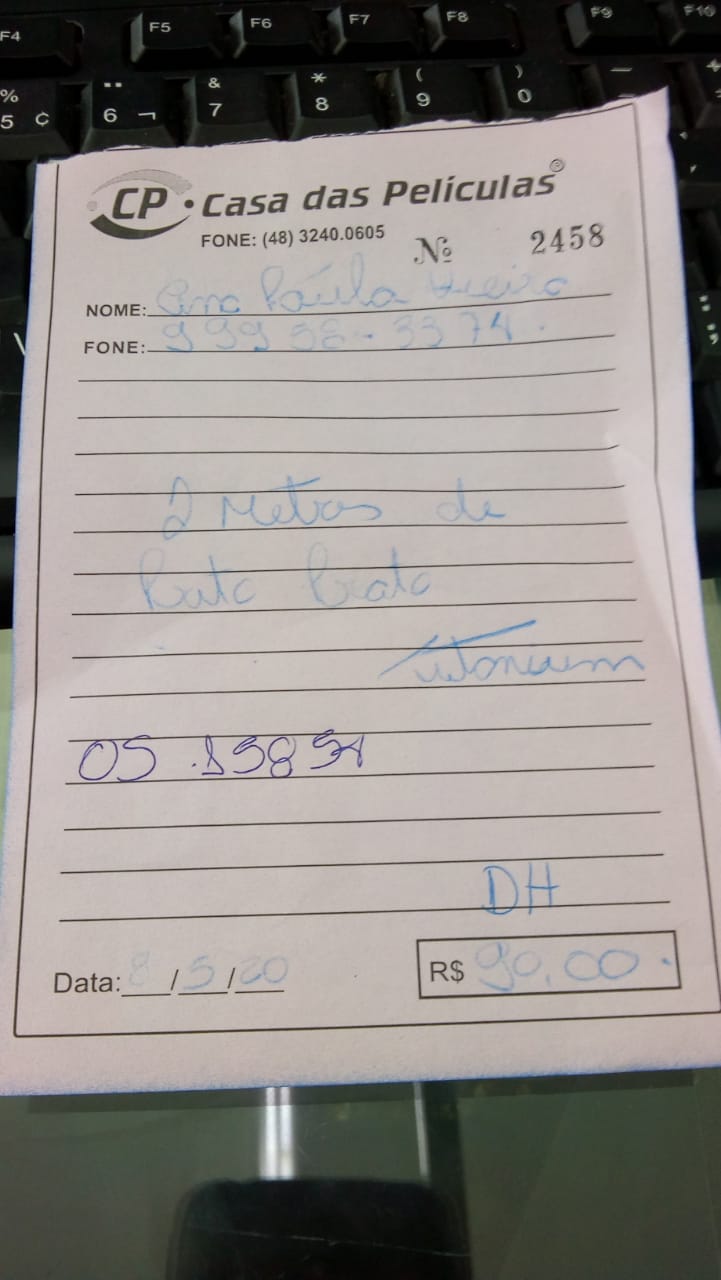 F4 F5 F6 F7 F8 F9 F10
% 5 ¢ 6 ¬ & 7 * 8 ( 9 ) 0
CP • Casa das Películas®
FONE: (48) 3240.0605
Nº 2458
NOME: Ana Paula Vieira
FONE: 99958-3374
2 metros de
Preto
OS 15854
DH
Data: 8/5/20
R$ 90,00